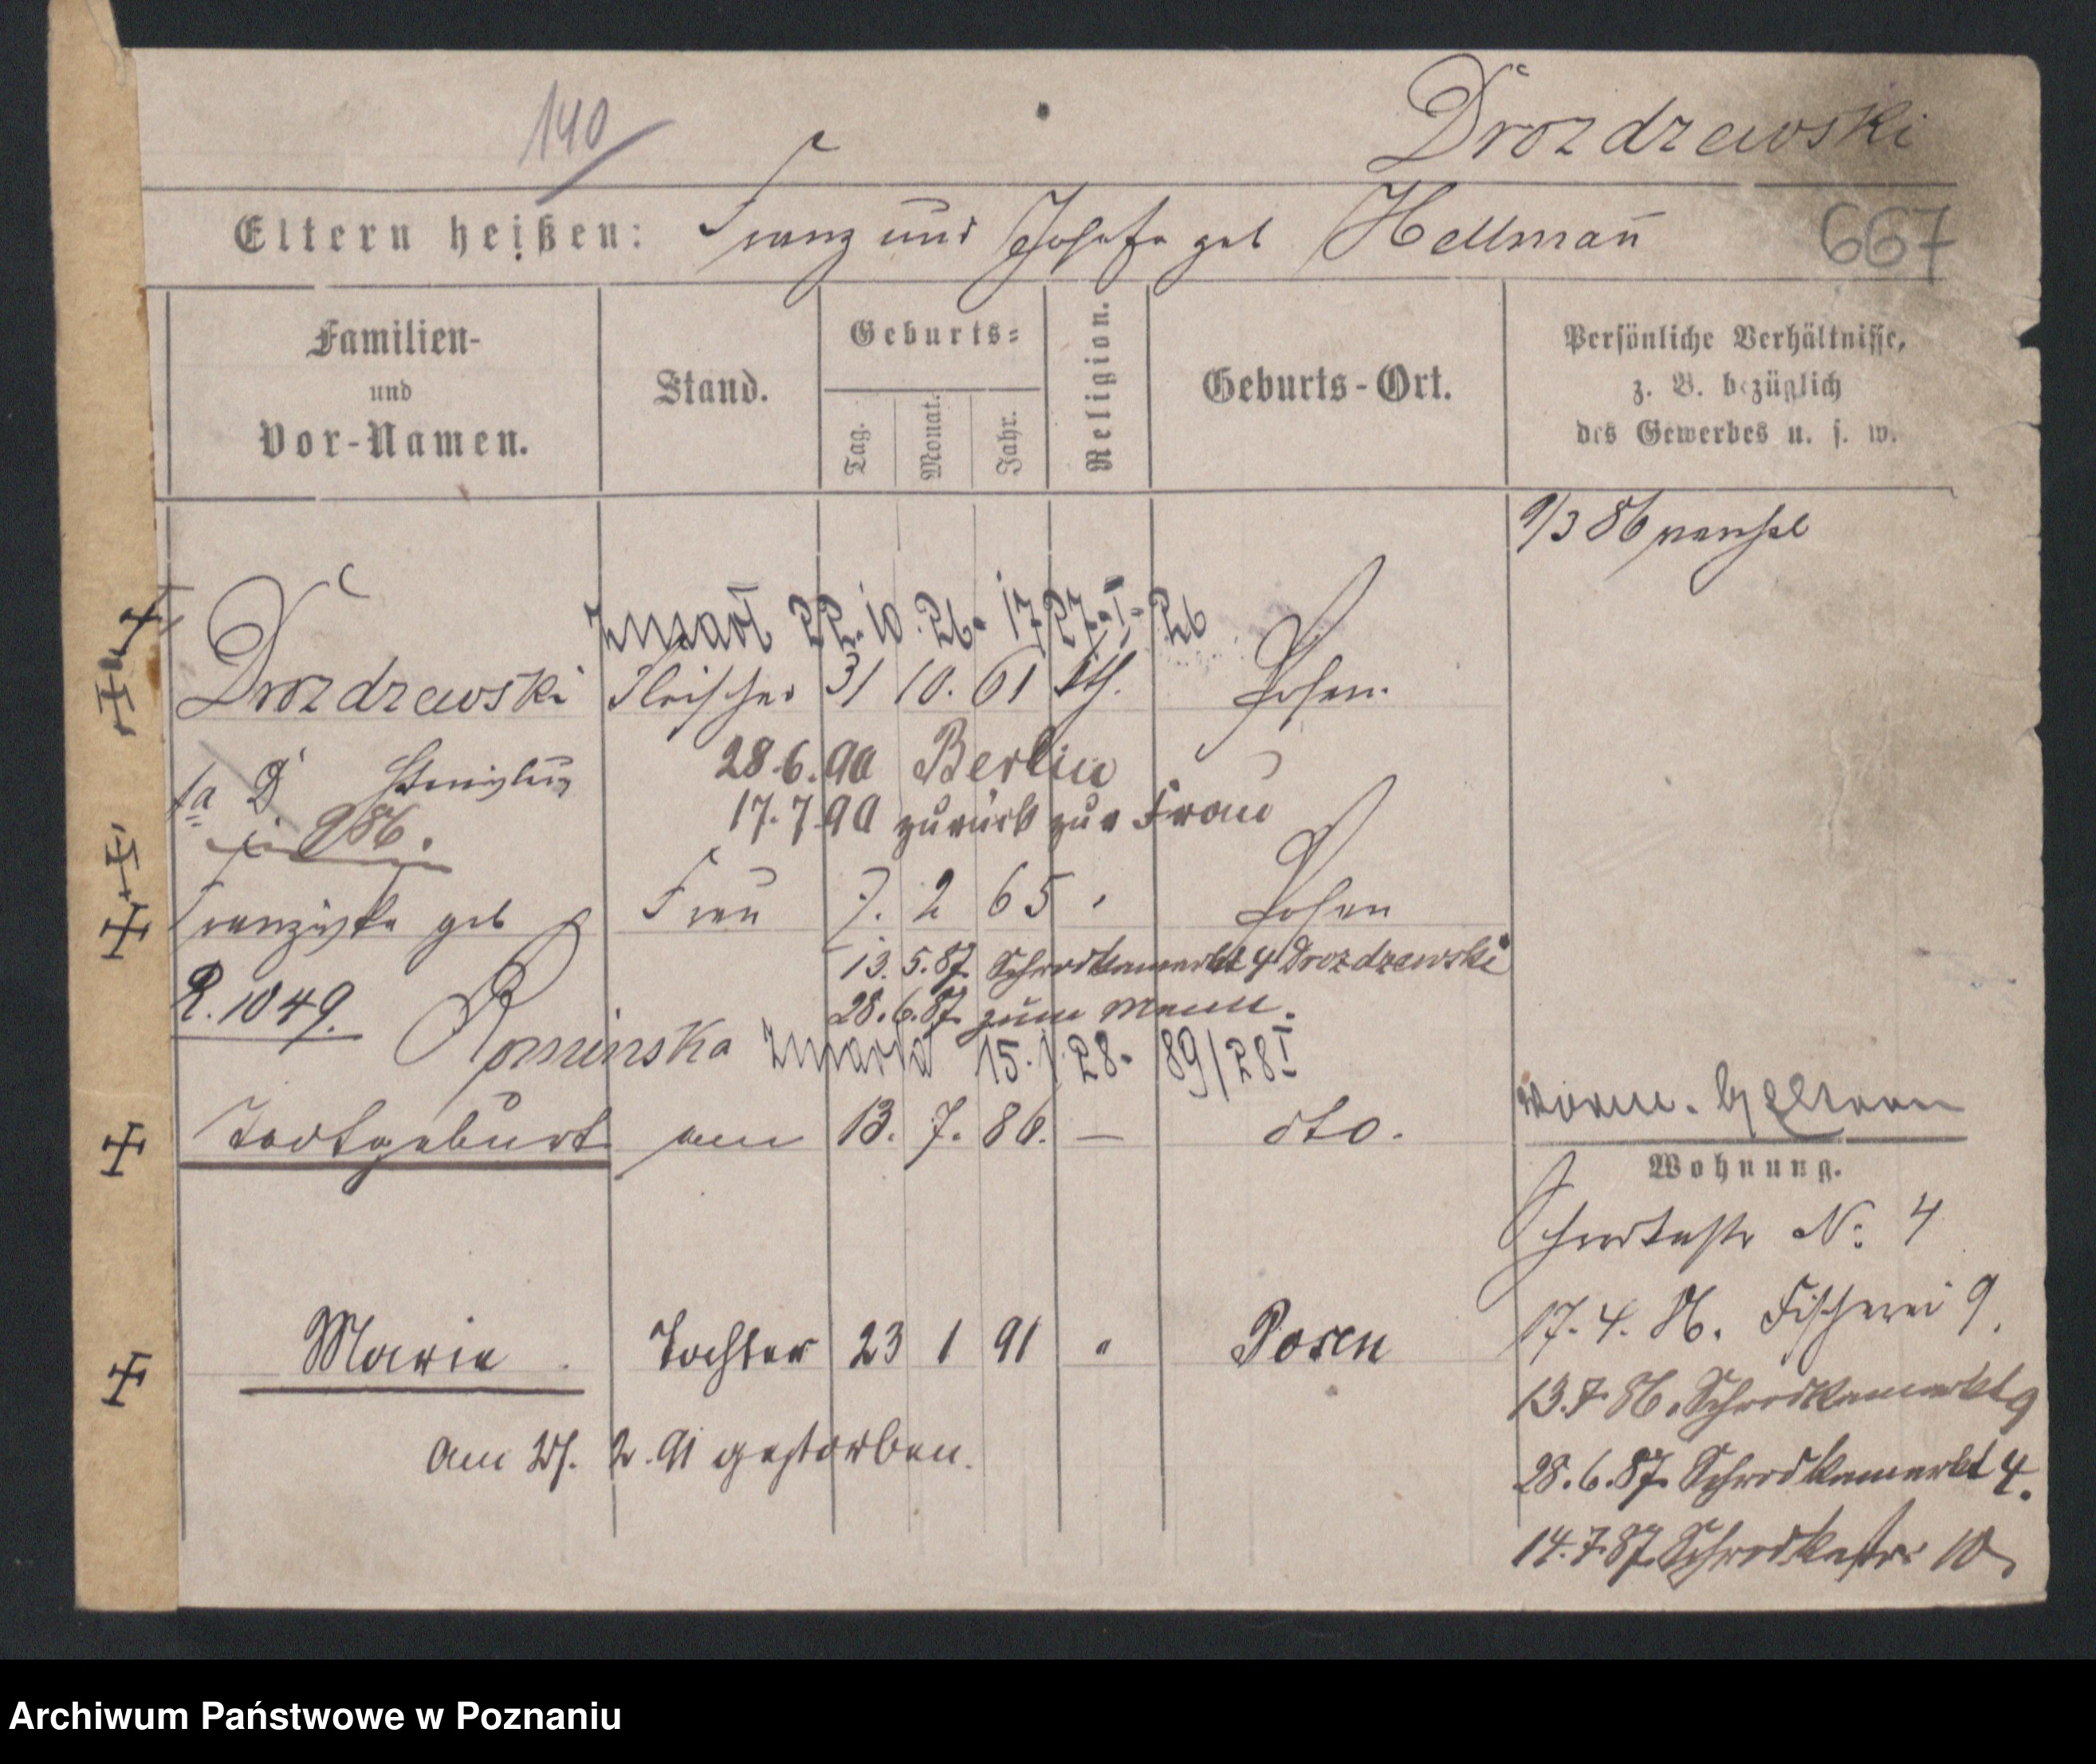 140
Drozdzewski
Eltern heißen: Franz und Josefa geb Hellmann̄
667
Familien-
und
Vor-Namen.
Stand.
Geburts=
Tag.
Monat.
Jahr.
Religion.
Geburts-Ort.
Persönliche Verhältnisse,
z. B. bezüglich
des Gewerbes u. s. w.
9/3 86
Zmarł 22.10.26. 1727.I.26
Drozdzewski Fleischer 31 10. 61 kth. Posen.
28.6.90 Berlin
17.7.90 zurück zur Frau
986.
Franziska geb Frau 7. 2 65 " Posen
13.5.87. Schrodkamarkt 4 Drozdzewski
R. 1049. 28.6.87. zum Mann.
Rominska Zmarła 15.1.28. 89/28 I
Todtgeburt am 13. 7. 86. — dto.
Wohnung.
Schrodkastr No. 4
17.4.86. Fischerei 9.
Marie Tochter 23 1 91 " Posen
13.7.86. Schrodkamarkt 9
am 2. 91 gestorben.
28.6.87. Schrodkamarkt 4.
14.7.87. Schrodkastr. 10
Archiwum Państwowe w Poznaniu